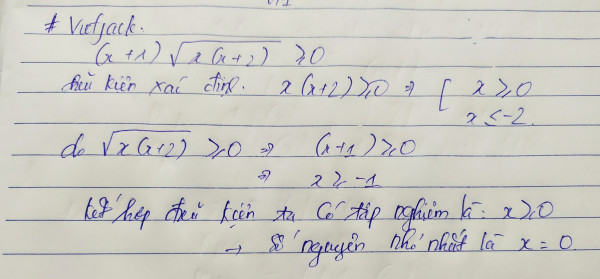 # Vietjack.
(x+1) √x(x+2) ≥0
điều kiện xác định. x(x+2)≥0 ⇒ [ x≥0
x≤-2.
do √x(x+2) ≥0 ⇒ (x+1)≥0
⇒ x≥-1
kết hợp điều kiện ta có tập nghiệm là: x≥0
→ số nguyên nhỏ nhất là x=0.